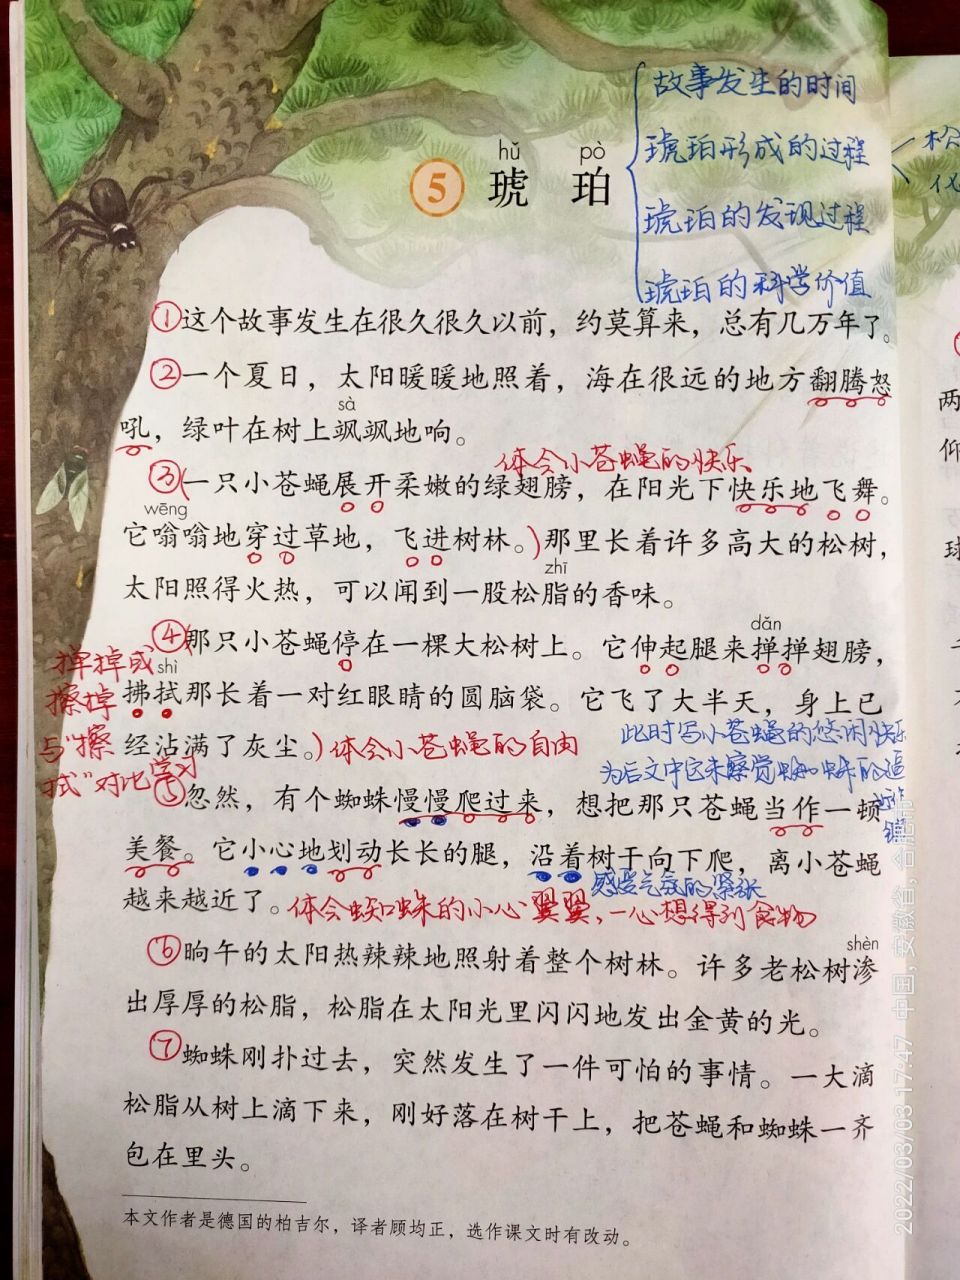 故事发生的时间
琥珀形成的过程
琥珀的发现过程
琥珀的科学价值
hǔ pò
5 琥 珀
①这个故事发生在很久很久以前，约莫算来，总有几万年了。
②一个夏日，太阳暖暖地照着，海在很远的地方翻腾怒
sà
吼，绿叶在树上飒飒地响。
体会小苍蝇的快乐
③(一只小苍蝇展开柔嫩的绿翅膀，在阳光下快乐地飞舞。
wēng
它嗡嗡地穿过草地，飞进树林。)那里长着许多高大的松树，
zhī
太阳照得火热，可以闻到一股松脂的香味。
dǎn
④(那只小苍蝇停在一棵大松树上。它伸起腿来掸掸翅膀，
shì
拂拭那长着一对红眼睛的圆脑袋。它飞了大半天，身上已
经沾满了灰尘。)体会小苍蝇的自由
掸掉或
擦掉
与“擦
拭”对比学习
此时写小苍蝇的悠闲快乐
为后文中它未察觉蜘蛛的逼
近作
⑤忽然，有个蜘蛛慢慢爬过来，想把那只苍蝇当作一顿
美餐。它小心地划动长长的腿，沿着树干向下爬，离小苍蝇
感受气氛的紧张
越来越近了。体会蜘蛛的小心翼翼，一心想得到食物
⑥晌午的太阳热辣辣地照射着整个树林。许多老松树渗
shèn
出厚厚的松脂，松脂在太阳光里闪闪地发出金黄的光。
⑦蜘蛛刚扑过去，突然发生了一件可怕的事情。一大滴
松脂从树上滴下来，刚好落在树干上，把苍蝇和蜘蛛一齐
包在里头。
本文作者是德国的柏吉尔，译者顾均正，选作课文时有改动。
松
化
两
仰
球
2022/03/03 17:47 中国，安徽省，合肥市